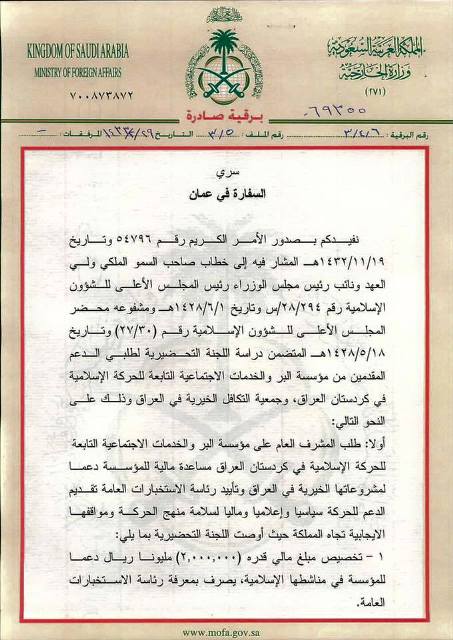 KINGDOM OF SAUDI ARABIA
MINISTRY OF FOREIGN AFFAIRS
٧٠٠٨٧٣٨٧٢
المملكة العربية السعودية
وزارة الخارجية
(٢٧١)
برقية صادرة
٦٩٣٥٥
رقم البرقية : ٣/٤/٦ رقم الملف : ٣/٥ التاريخ المرفقات : -
سري
السفارة في عمان
نفيدكم بصدور الأمر الكريم رقم ٥٤٧٩٦ وتاريخ
١٤٣٢/١١/١٩هـ المشار فيه إلى خطاب صاحب السمو الملكي ولي
العهد ونائب رئيس مجلس الوزراء رئيس المجلس الأعلى للشؤون
الإسلامية رقم ٢٨/٢٩٤/س وتاريخ ١٤٢٨/٦/١هـ ومشفوعه محضر
المجلس الأعلى للشؤون الإسلامية رقم (٢٧/٣٠) وتاريخ
١٤٢٨/٥/١٨هـ المتضمن دراسة اللجنة التحضيرية لطلبي الدعم
المقدمين من مؤسسة البر والخدمات الاجتماعية التابعة للحركة الإسلامية
في كردستان العراق، وجمعية التكافل الخيرية في العراق وذلك على
النحو التالي:
أولا: طلب المشرف العام على مؤسسة البر والخدمات الاجتماعية التابعة
للحركة الإسلامية في كردستان العراق مساعدة مالية للمؤسسة دعما
لمشروعاتها الخيرية في العراق وتأييد رئاسة الاستخبارات العامة تقديم
الدعم للحركة سياسيا وإعلاميا وماليا لسلامة منهج الحركة ومواقفها
الايجابية تجاه المملكة حيث أوصت اللجنة التحضيرية بما يلي:
١ - تخصيص مبلغ مالي قدره (٢,٠٠٠,٠٠٠) مليونا ريال دعما
للمؤسسة في مناشطها الإسلامية، يصرف بمعرفة رئاسة الاستخبارات
العامة.
www.mofa.gov.sa